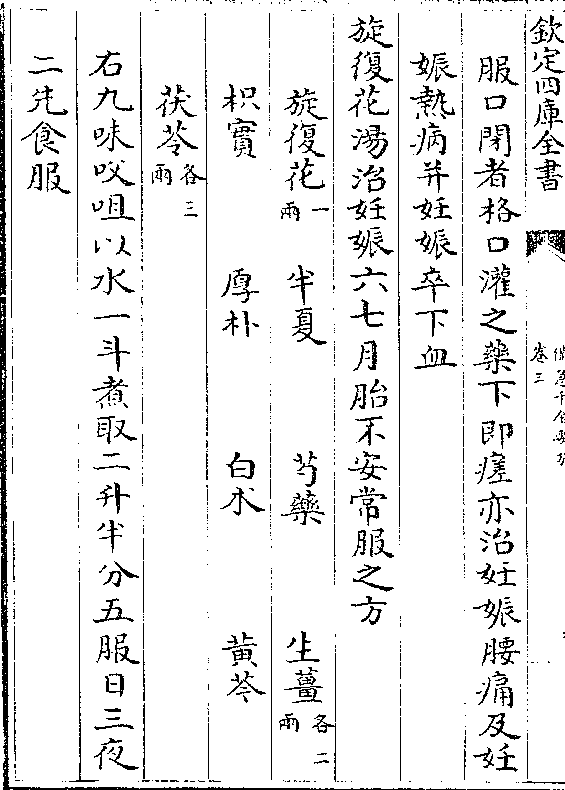 欽定四庫全書
卷三
服口閉者格口灌之藥下即瘥亦治妊娠腰痛及妊
娠熱病并妊娠卒下血
旋復花湯治妊娠六七月胎不安常服之方
旋復花一兩 半夏 芍藥 生薑各二兩
枳實 厚朴 白术 黄芩
茯苓各三兩
右九味㕮咀以水一斗煮取二升半分五服日三夜
二先食服